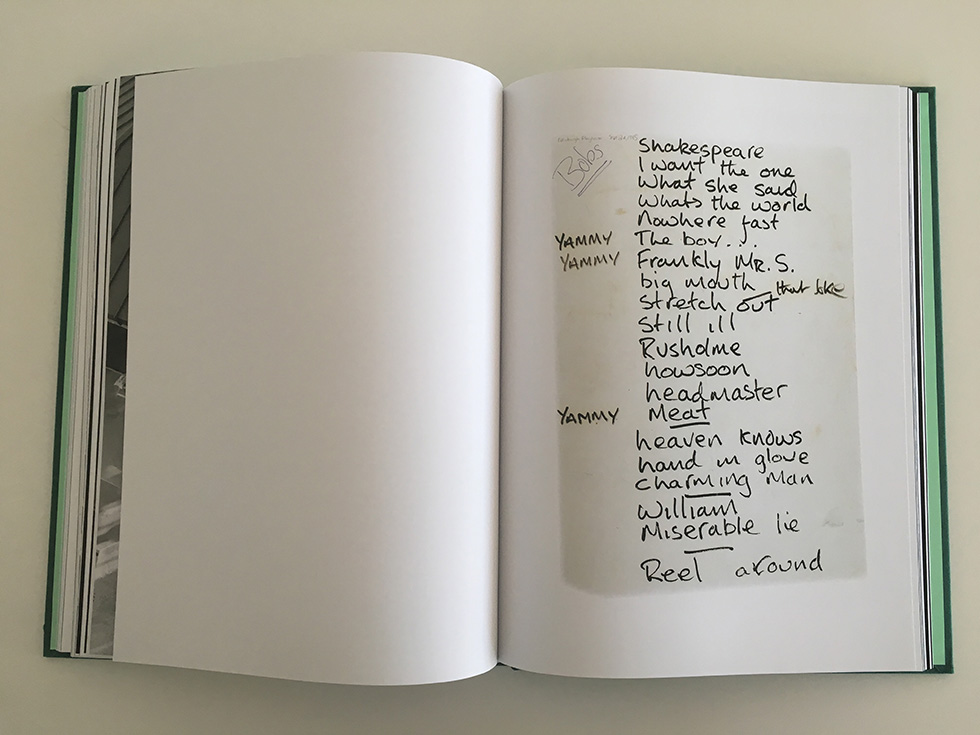 Bobs
Shakespeare
I want the one
What she said
Whats the world
Nowhere fast
YAMMY The boy...
YAMMY Frankly Mr. S.
big mouth
stretch out that joke
Still ill
Rusholme
howsoon
headmaster
YAMMY Meat
heaven knows
hand in glove
Charming Man
William
Miserable lie
Reel around